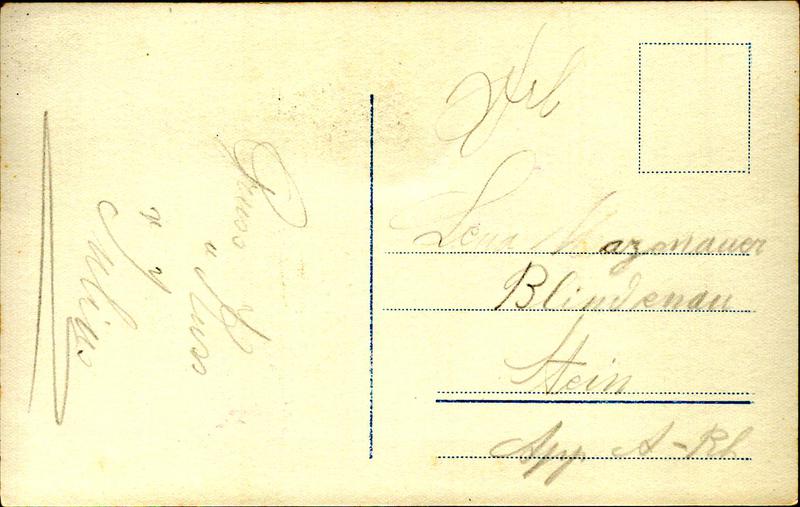 Gruss
u Kuss
v
Julius
Frl
Lena Mazenauer
Blindenau
Stein
App. A-Rh